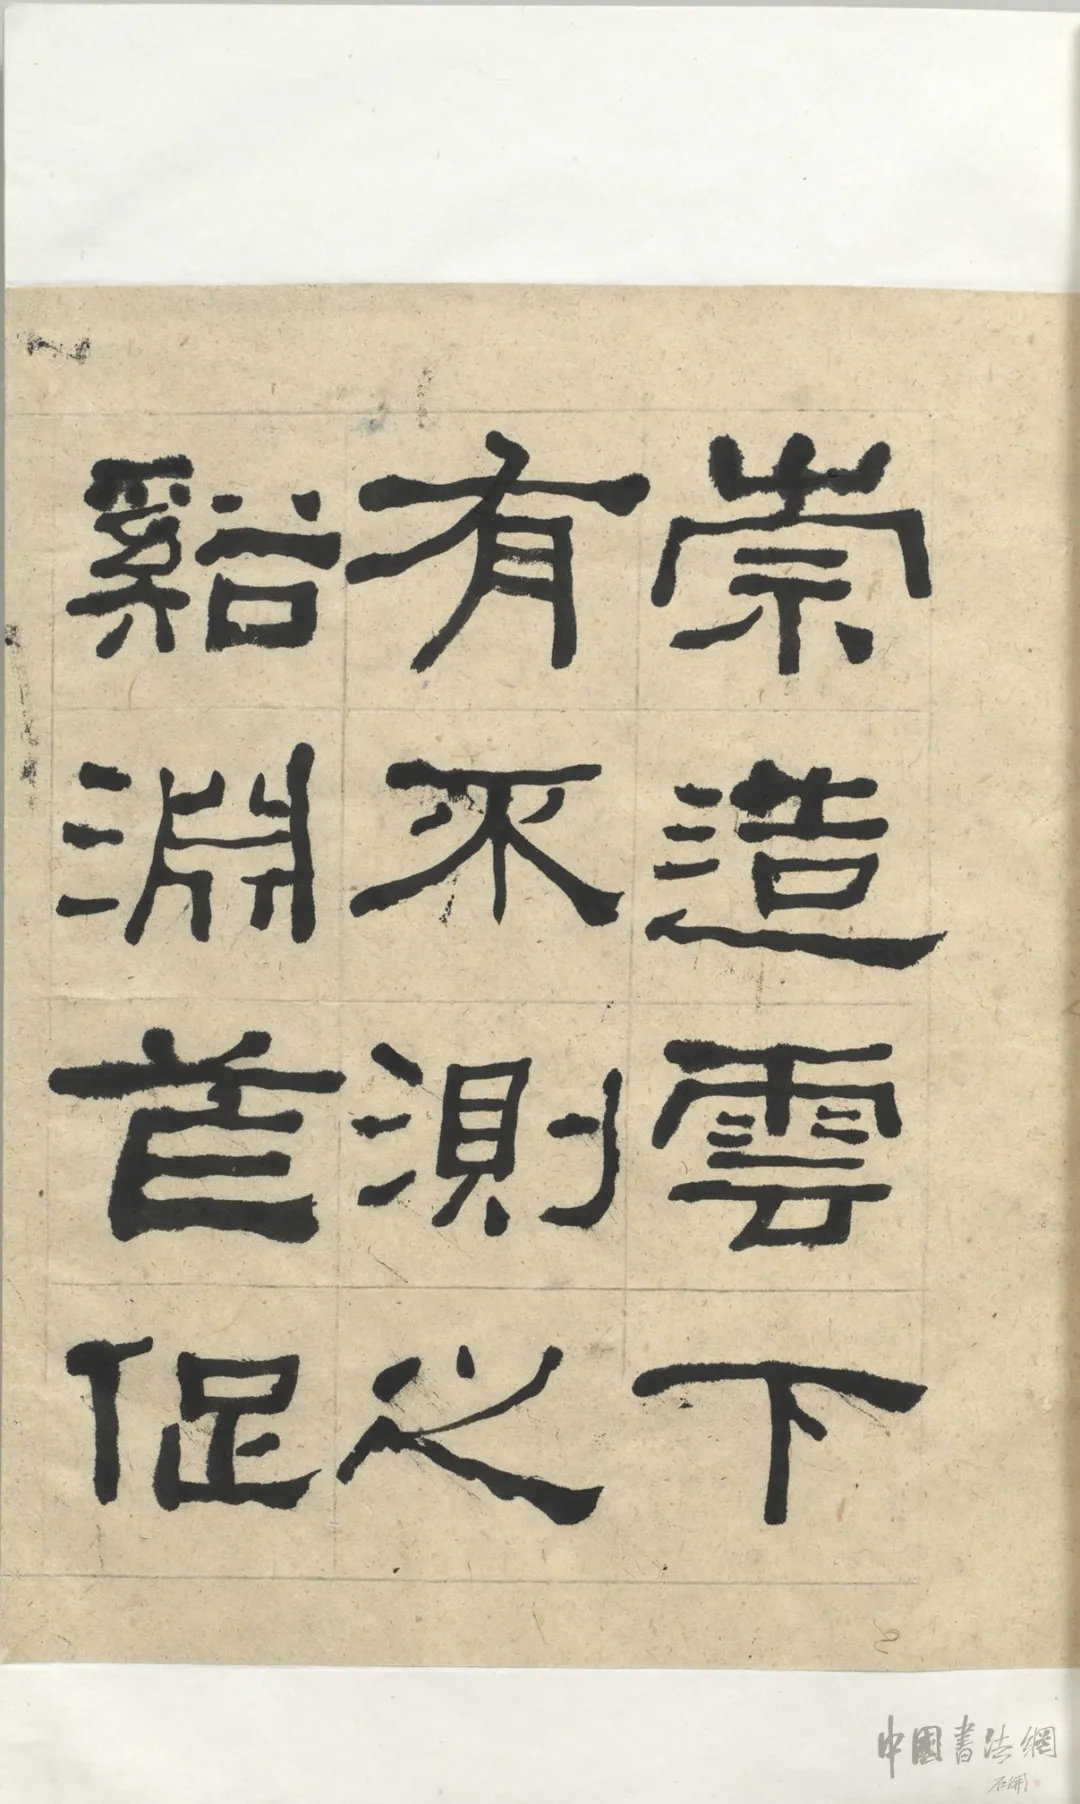 崇造雲下
有不測之
谿淵苲促
中國書法網
石開